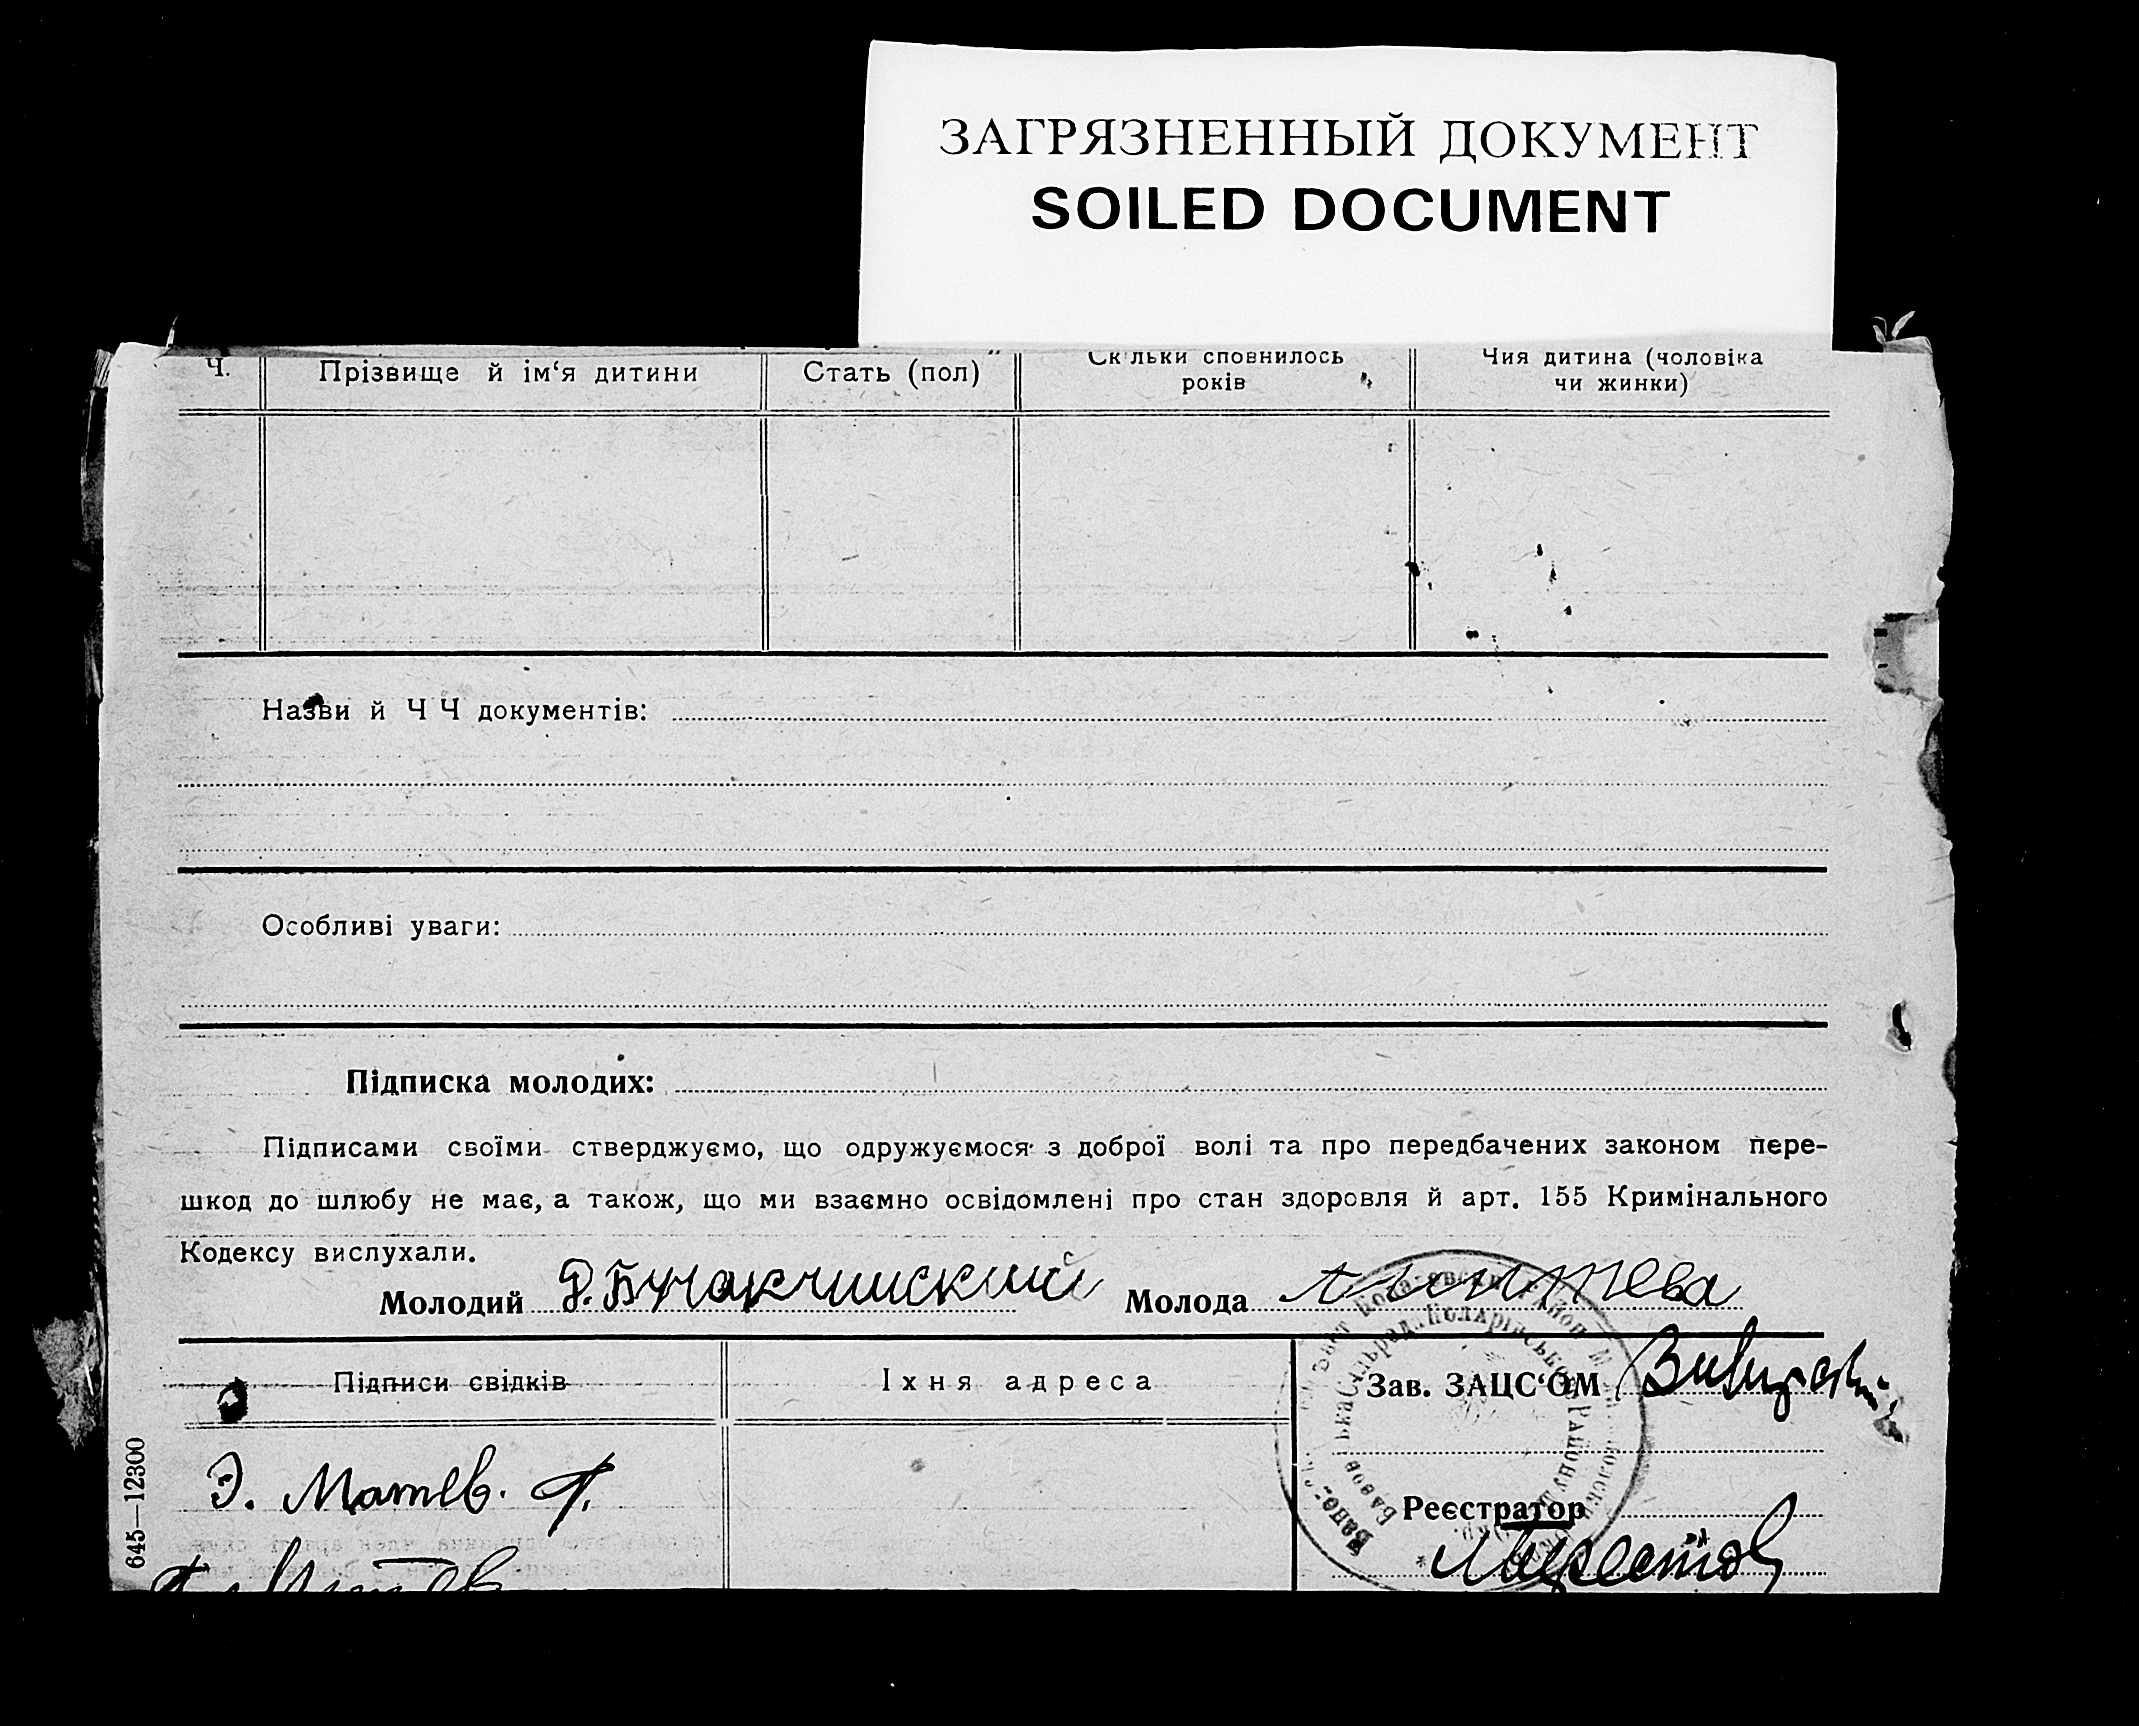 ЗАГРЯЗНЕННЫЙ ДОКУМЕНТ
SOILED DOCUMENT
Ч.
Прізвище й ім‘я дитини
Стать (пол)
Скільки сповнилось
років
Чия дитина (чоловіка
чи жинки)
Назви й Ч Ч документів:
Особливі уваги:
Підписка молодих:
Підписами своїми стверджуємо, що одружуємося з доброї волі та про передбачених законом пере-
шкод до шлюбу не має, а також, що ми взаємно освідомлені про стан здоровля й арт. 155 Кримінального
Кодексу вислухали.
Молодий
Молода
Підписи свідків
Їхня адреса
Зав. ЗАЦС‘ОМ
Э. Матев. Ф.
Реєстратор
645—12300